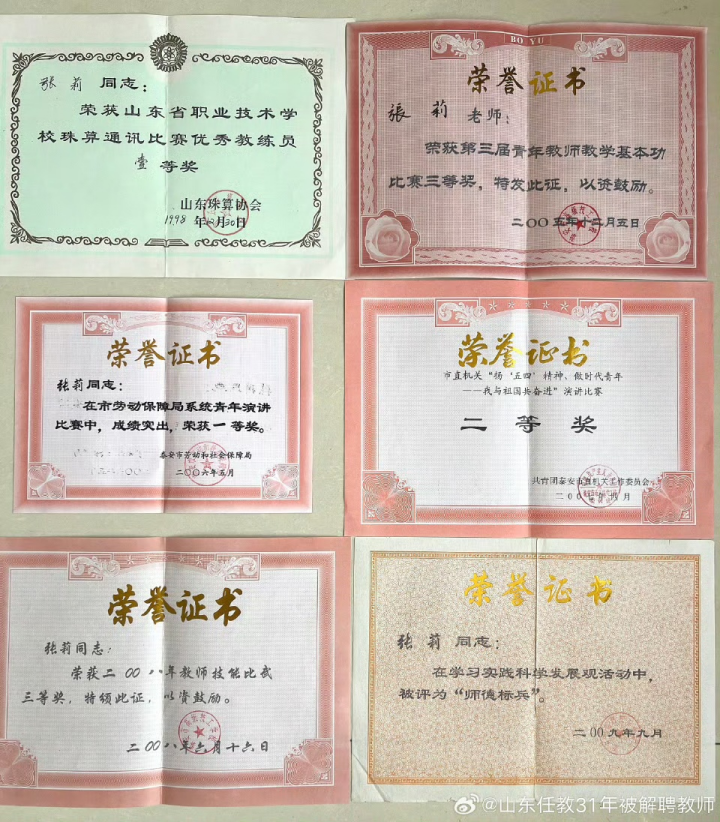 张莉 同志：
荣获山东省职业技术学
校珠算通讯比赛优秀教练员
壹 等奖
山东珠算协会
1998 年12月30日
BO YU
荣誉证书
張莉 老师：
荣获第三届青年教师教学基本功
比赛三等奖，特发此证，以资鼓励。
二〇〇五年十二月五日
荣誉证书
张莉同志：
在市劳动保障局系统青年演讲
比赛中，成绩突出，荣获一等奖。
泰安市劳动和社会保障局
二〇〇六年五月
荣誉证书
市直机关“扬‘五四’精神，做时代青年
——我与祖国共奋进”演讲比赛
二等奖
共青团泰安市直机关工作委员会
荣誉证书
张莉同志：
荣获二〇〇八年教师技能比武
三等奖，特颁此证，以资鼓励。
二〇〇八年六月十六日
荣誉证书
张莉 同志：
在学习实践科学发展观活动中，
被评为“师德标兵”。
二〇〇九年九月
@山东任教31年被解聘教师